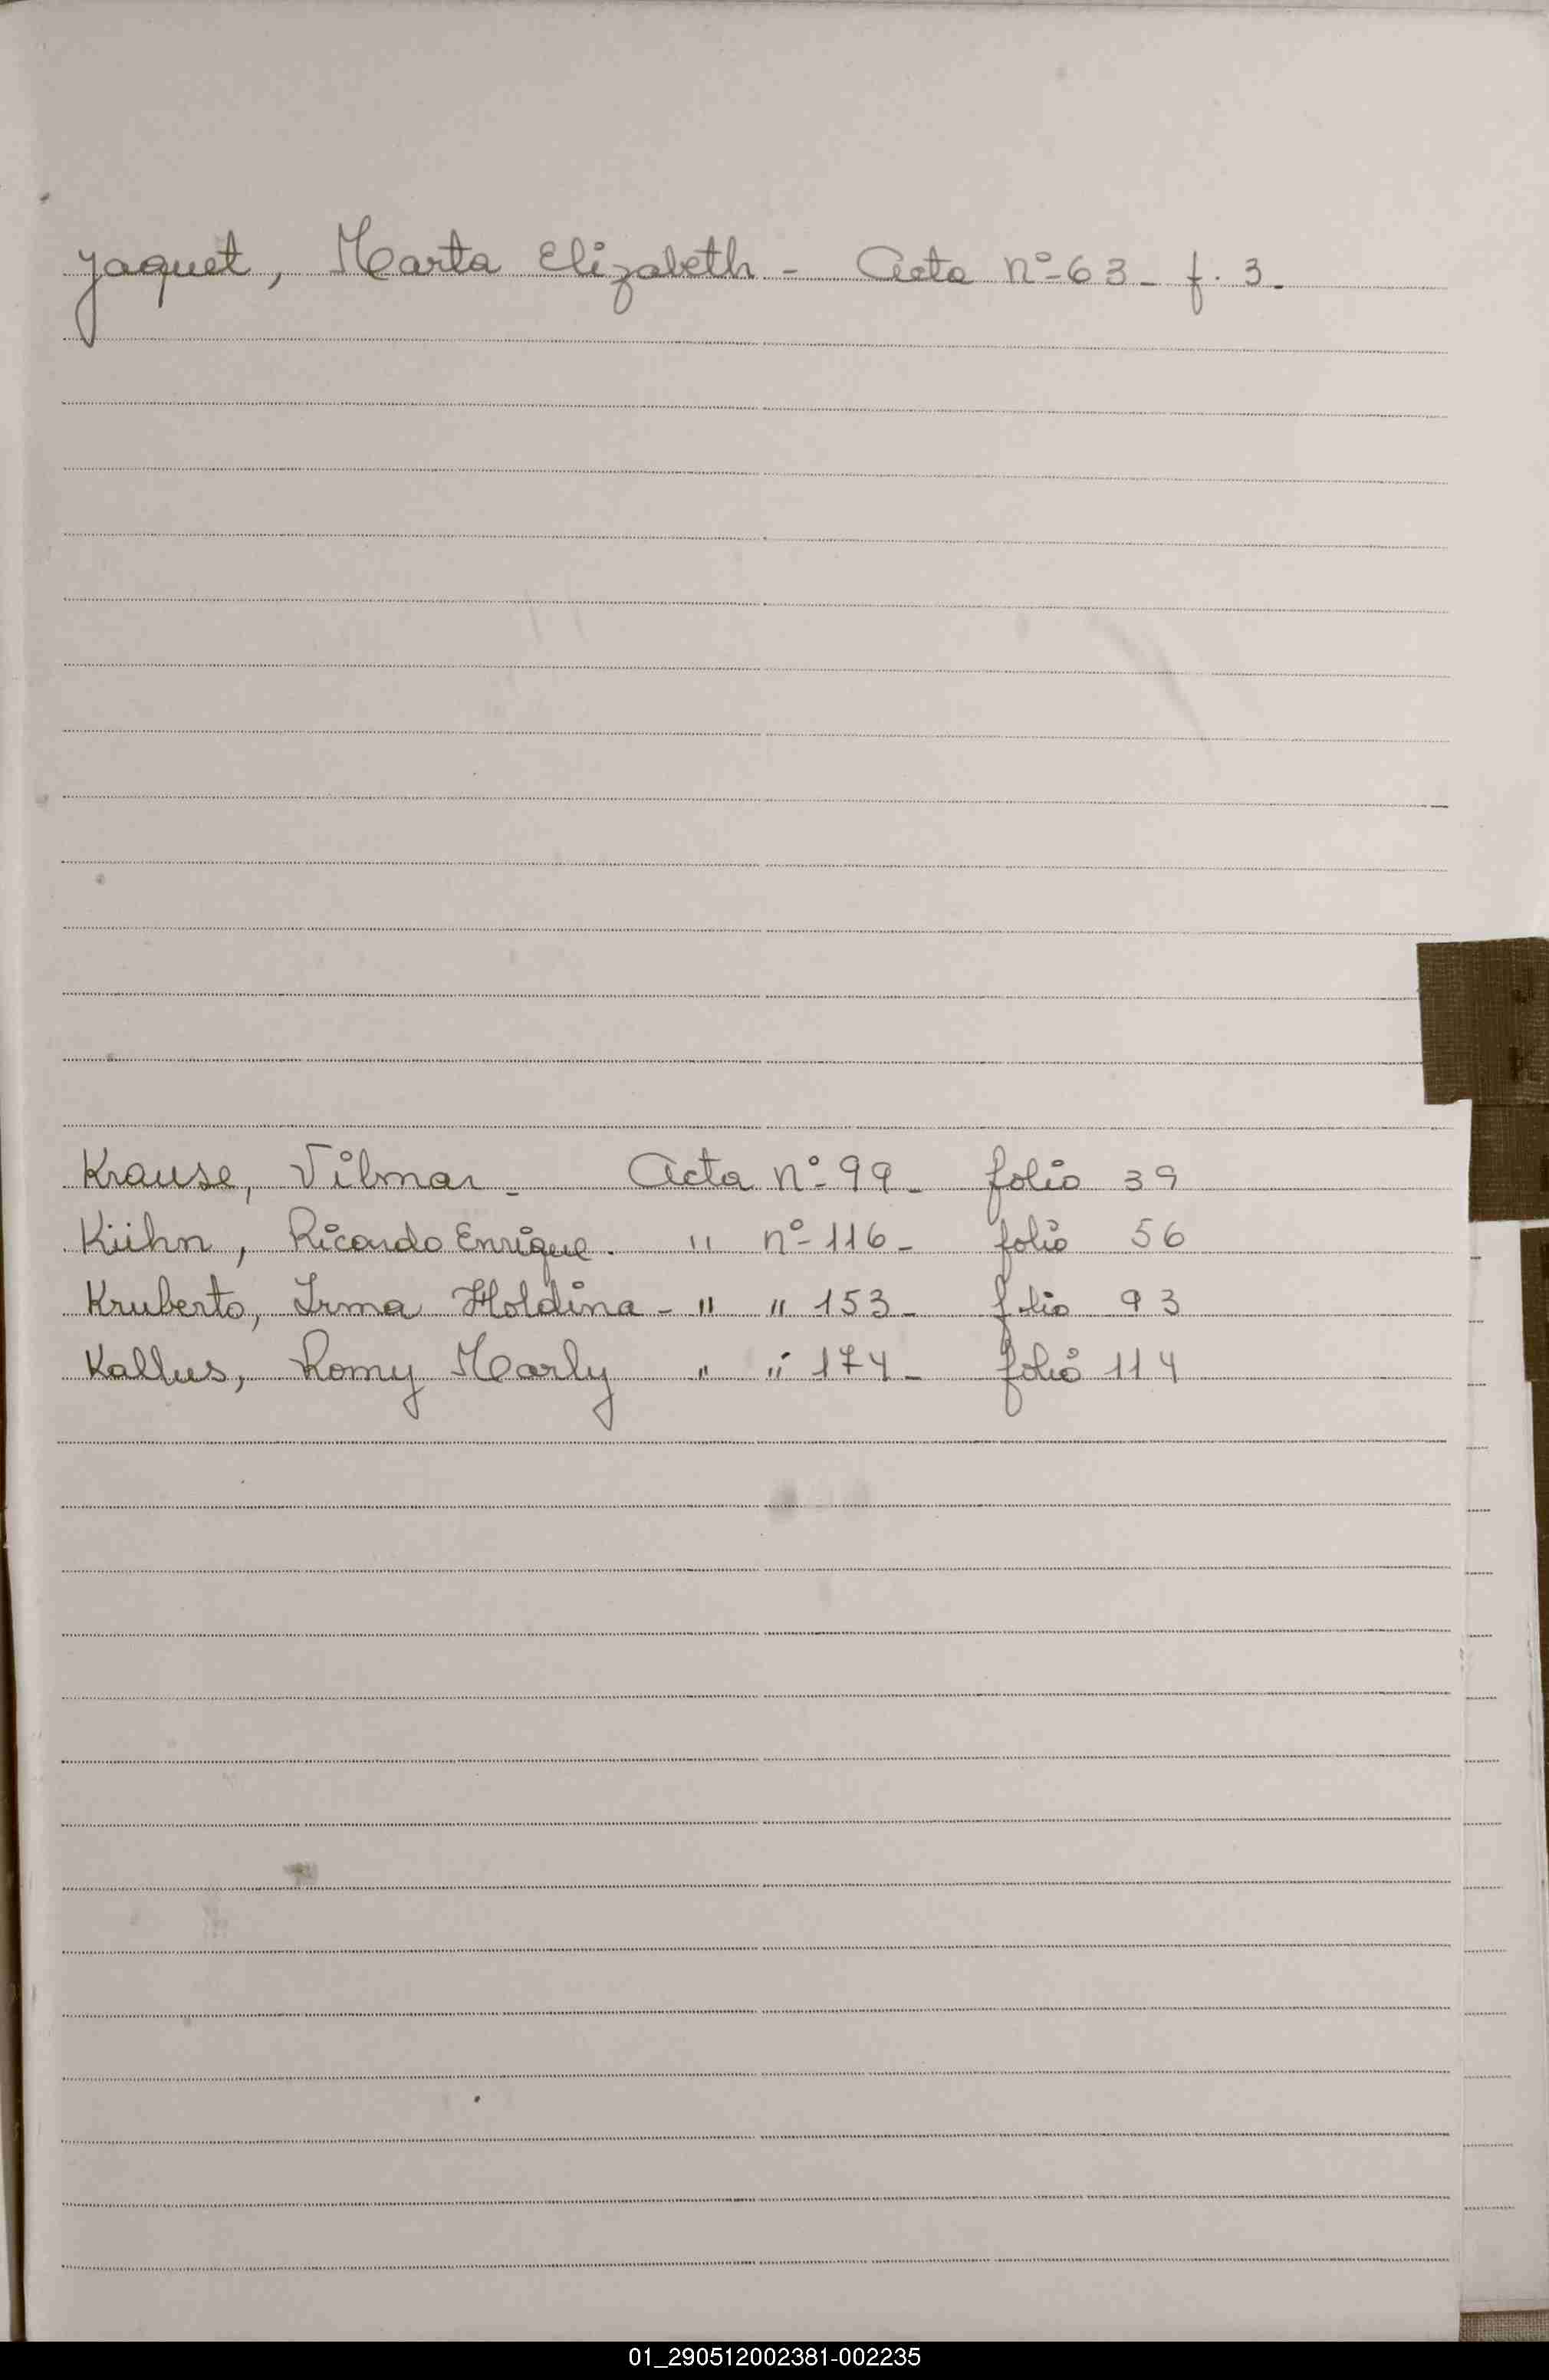 Jaquet, Marta Elizabeth - Acta nº 63 - f. 3.
Krause, Vilmar - Acta nº 99 - folio 39
Kühn, Ricardo Enrique. " nº 116 - folio 56
Kruberto, Irma Holdina - " " 153 - folio 93
Kallus, Romy Marly " " 174 - folio 114
01_290512002381-002235